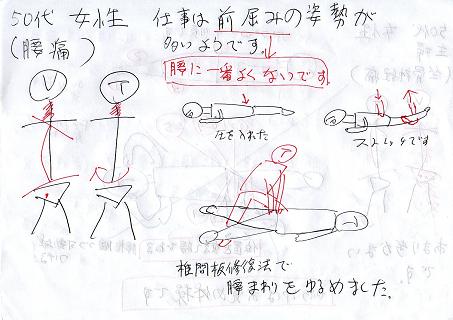 50代 女性 仕事は前屈みの姿勢が
(腰痛) 多いようです。
腰に一番よくないのです。
圧を入れた
ストレッチです
椎間板修復法で
腰まわりをゆるめました。